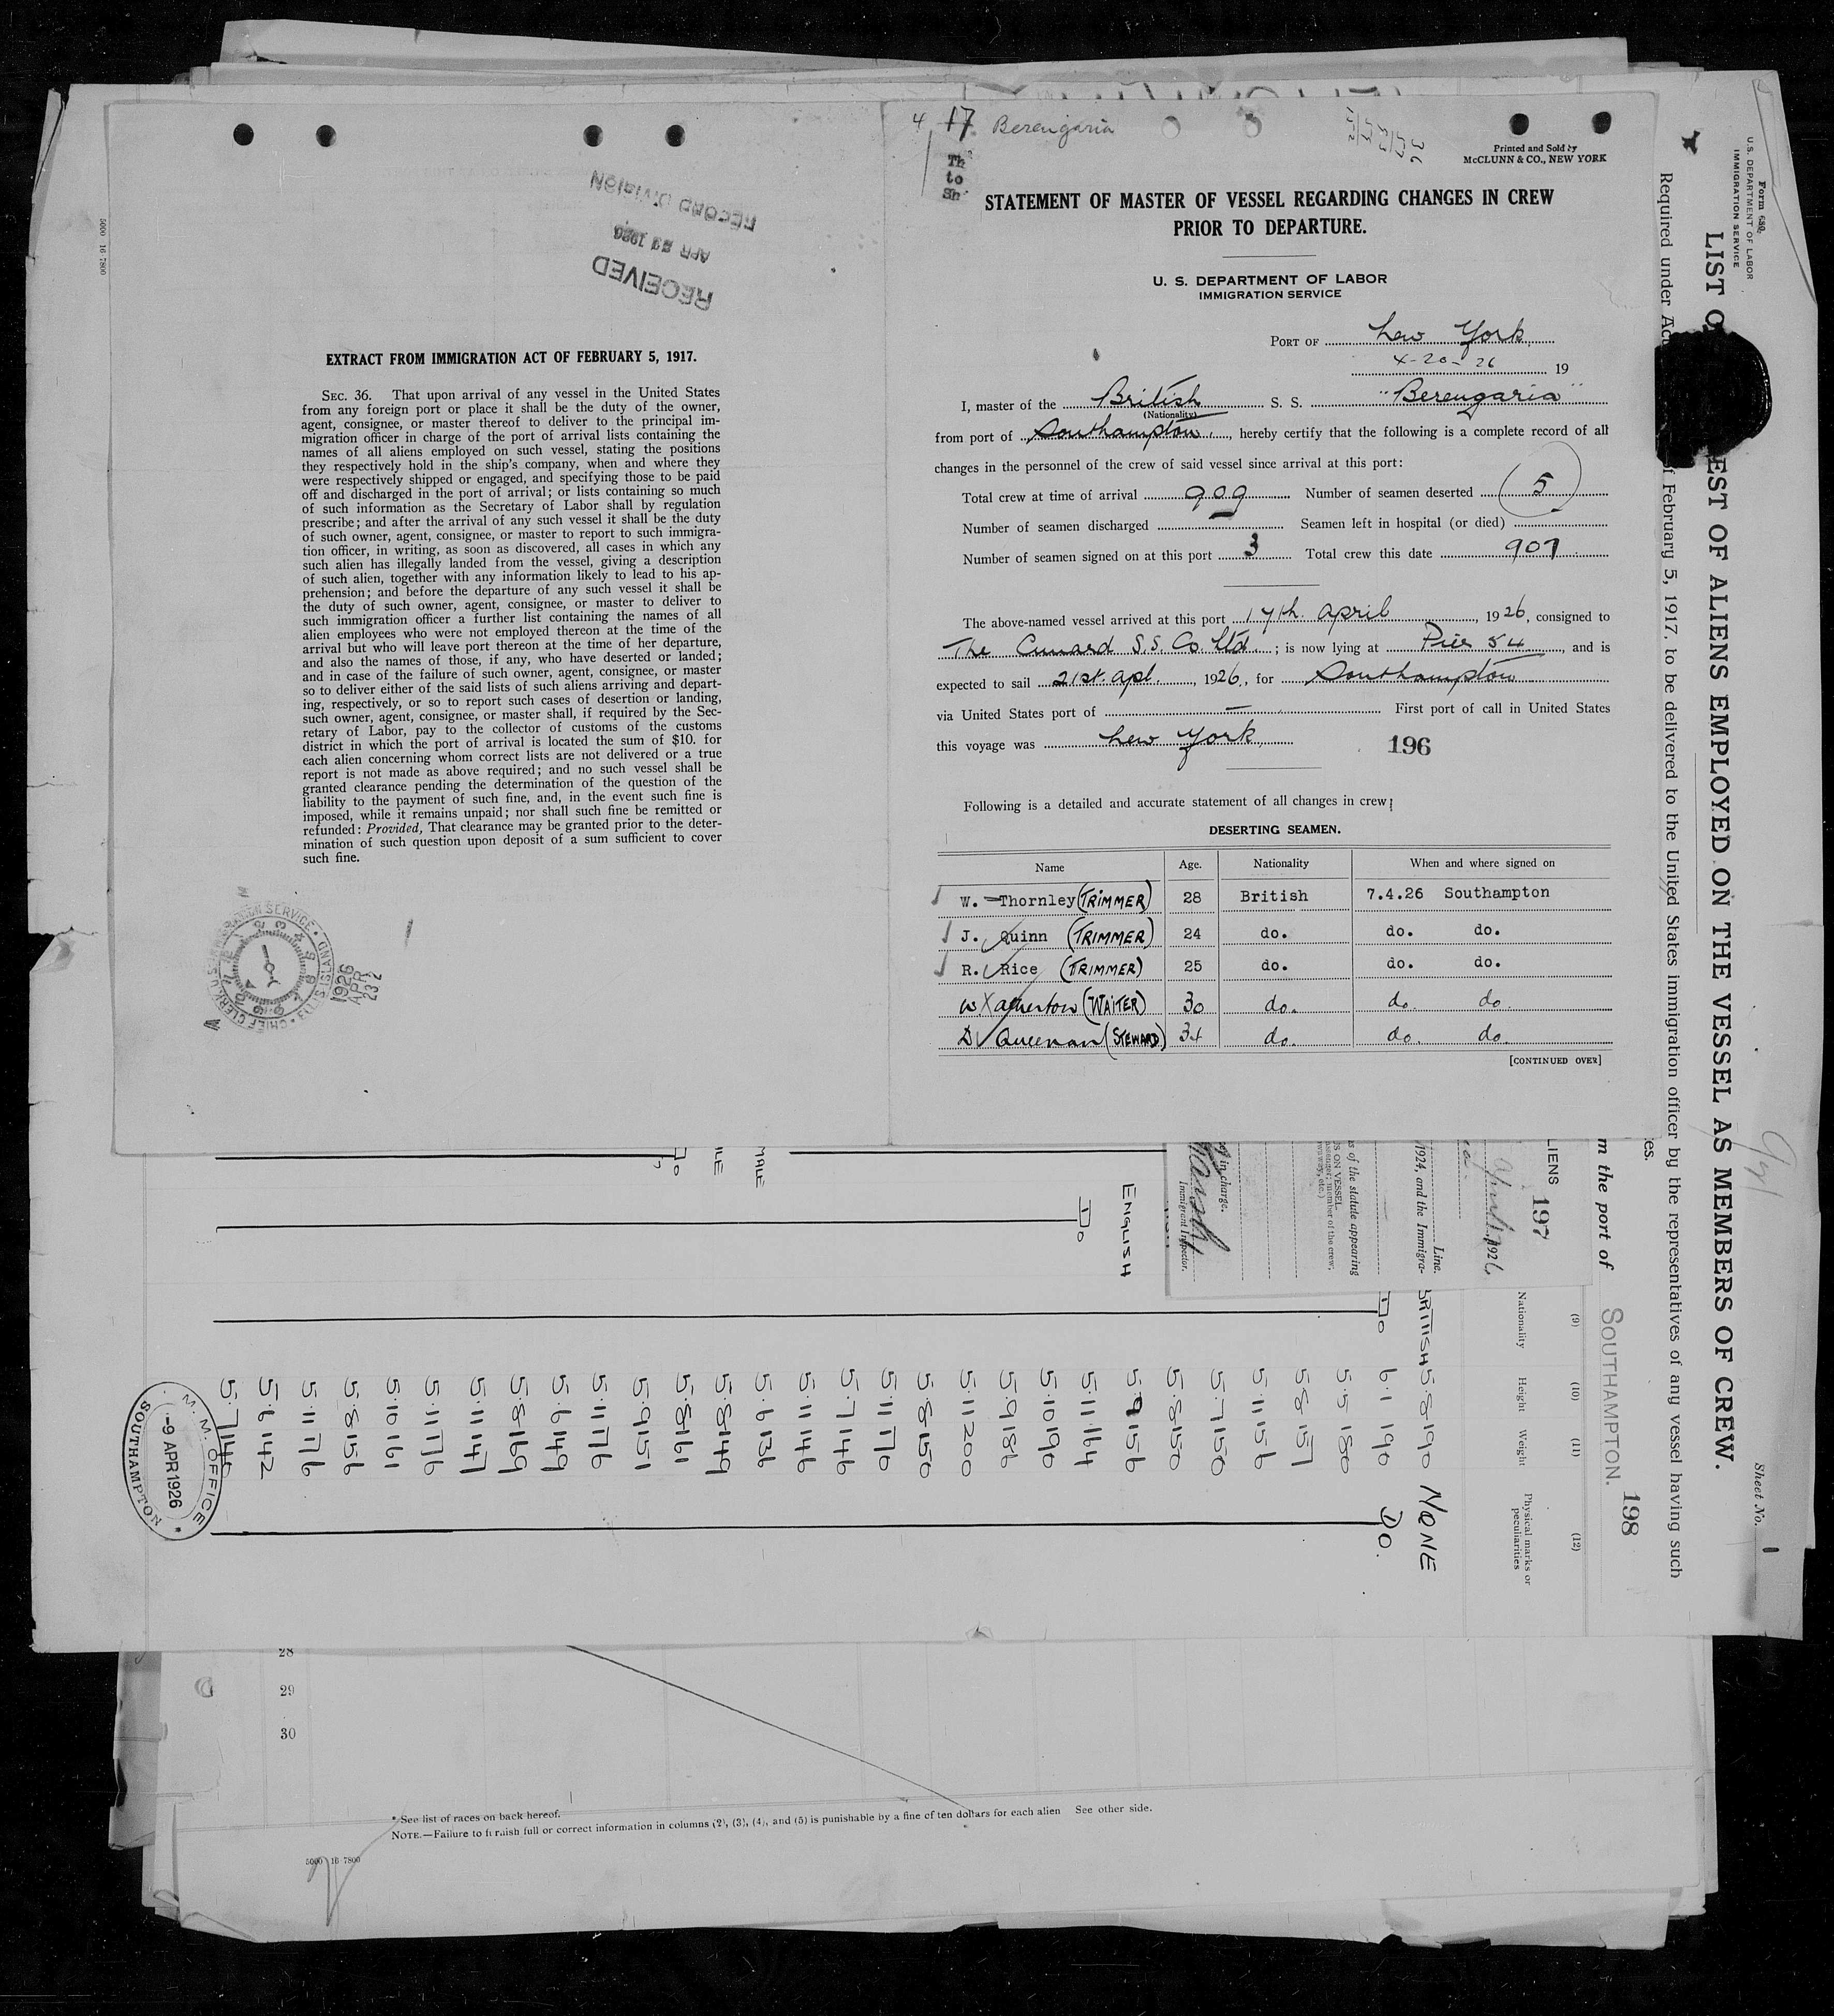 EXTRACT FROM IMMIGRATION ACT OF FEBRUARY 5, 1917.
SEC. 36. That upon arrival of any vessel in the United States
from any foreign port or place it shall be the duty of the owner,
agent, consignee, or master thereof to deliver to the principal im-
migration officer in charge of the port of arrival lists containing the
names of all aliens employed on such vessel, stating the positions
they respectively hold in the ship's company, when and where they
were respectively shipped or engaged, and specifying those to be paid
off and discharged in the port of arrival; or lists containing so much
of such information as the Secretary of Labor shall by regulation
prescribe; and after the arrival of any such vessel it shall be the duty
of such owner, agent, consignee, or master to report to such immigra-
tion officer, in writing, as soon as discovered, all cases in which any
such alien has illegally landed from the vessel, giving a description
of such alien, together with any information likely to lead to his ap-
prehension; and before the departure of any such vessel it shall be
the duty of such owner, agent, consignee, or master to deliver to
such immigration officer a further list containing the names of all
alien employees who were not employed thereon at the time of the
arrival but who will leave port thereon at the time of her departure,
and also the names of those, if any, who have deserted or landed;
and in case of the failure of such owner, agent, consignee, or master
so to deliver either of the said lists of such aliens arriving and depart-
ing, respectively, or so to report such cases of desertion or landing,
such owner, agent, consignee, or master shall, if required by the Sec-
retary of Labor, pay to the collector of customs of the customs
district in which the port of arrival is located the sum of $10. for
each alien concerning whom correct lists are not delivered or a true
report is not made as above required; and no such vessel shall be
granted clearance pending the determination of the question of the
liability to the payment of such fine, and, in the event such fine is
imposed, while it remains unpaid; nor shall such fine be remitted or
refunded: Provided, That clearance may be granted prior to the deter-
mination of such question upon deposit of a sum sufficient to cover
such fine.
RECEIVED
APR 23 1926
RECORD DIVISION
1926
APR
23
5000 16 7800
4 17 Berengaria
Th
to
Sh
Printed and Sold by
McCLUNN & CO., NEW YORK
STATEMENT OF MASTER OF VESSEL REGARDING CHANGES IN CREW
PRIOR TO DEPARTURE.
U. S. DEPARTMENT OF LABOR
IMMIGRATION SERVICE
PORT OF New York
4-20-26 19
I, master of the British S. S. "Berengaria"
(Nationality)
from port of Southampton, hereby certify that the following is a complete record of all
changes in the personnel of the crew of said vessel since arrival at this port:
Total crew at time of arrival 909 Number of seamen deserted 5
Number of seamen discharged Seamen left in hospital (or died)
Number of seamen signed on at this port 3 Total crew this date 907
The above-named vessel arrived at this port 17th April, 1926, consigned to
The Cunard S.S. Co. Ltd.; is now lying at Pier 54, and is
expected to sail 21st Apl., 1926, for Southampton
via United States port of — First port of call in United States
this voyage was New York
196
Following is a detailed and accurate statement of all changes in crew:
DESERTING SEAMEN.
Name Age. Nationality When and where signed on
W. Thornley (TRIMMER) 28 British 7.4.26 Southampton
J. Quinn (TRIMMER) 24 do. do. do.
R. Rice (TRIMMER) 25 do. do. do.
W Atherton (WAITER) 30 do. do. do.
D Queenan (STEWARD) 34 do. do. do.
[CONTINUED OVER]
Form 680
U. S. DEPARTMENT OF LABOR
IMMIGRATION SERVICE
Sheet No. 1
LIST O EST OF ALIENS EMPLOYED ON THE VESSEL AS MEMBERS OF CREW.
Required under Act of February 5, 1917, to be delivered to the United States immigration officer by the representatives of any vessel having such
m the port of SOUTHAMPTON. 198
LIENS 197
April 1926,
Line.
1924, and the Immigra-
s of the statute appearing
in charge.
Immigrant Inspector.
(9) (10) (11) (12)
Nationality Height Weight Physical marks or peculiarities
ENGLISH BRITISH 5.8 190 NONE
Do Do 6.1 190 Do.
5.5 180
5.8 157
5.11 156
5.7 150
5.8 150
5.9 156
5.11 164
5.10 190
5.9 181
5.11 200
5.8 150
5.11 170
5.7 146
5.11 146
5.6 136
5.8 149
5.8 161
5.9 151
5.11 176
5.6 149
5.8 169
5.11 147
5.11 176
5.10 161
5.8 156
5.11 176
5.6 142
5.7 146
M. M. OFFICE
-9 APR 1926
SOUTHAMPTON
28
29
30
* See list of races on back hereof.
NOTE.—Failure to furnish full or correct information in columns (2), (3), (4), and (5) is punishable by a fine of ten dollars for each alien See other side.
5000 16 7800